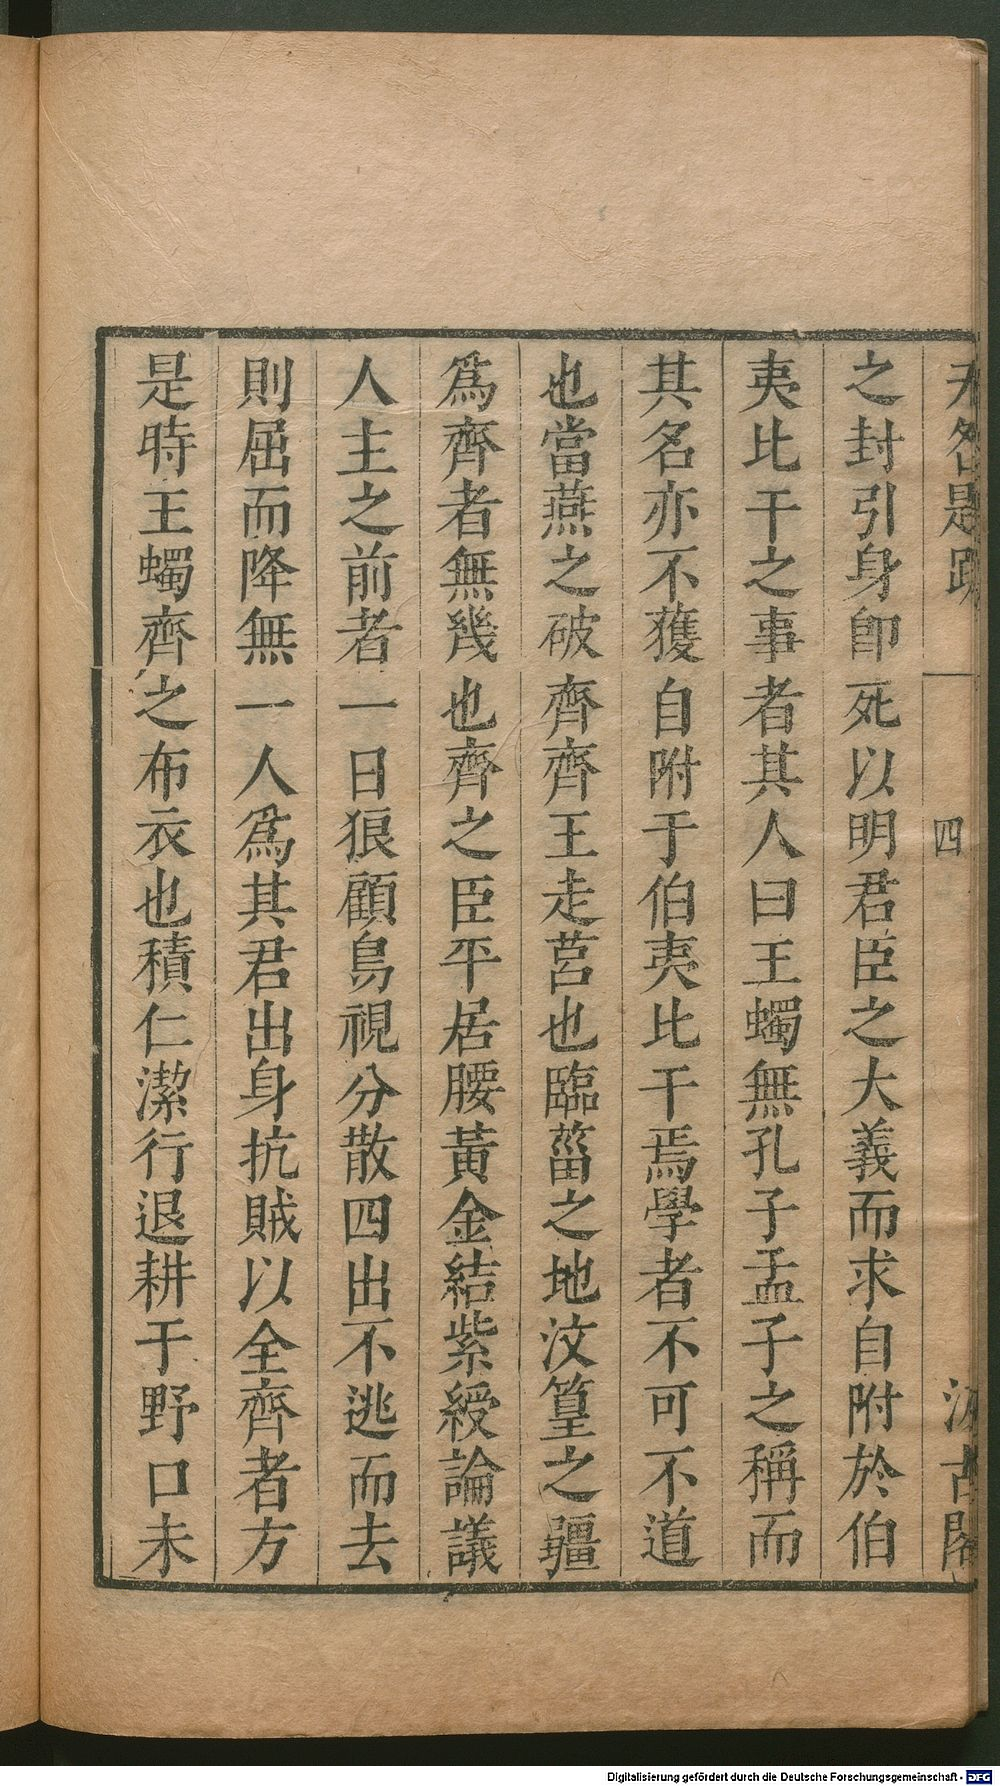 无咎題跋 一 四 汲古閣
之封引身即死以明君臣之大義而求自附於伯
夷比干之事者其人曰王蠋無孔子孟子之稱而
其名亦不獲自附于伯夷比干焉學者不可不道
也當燕之破齊齊王走莒也臨菑之地汶篁之疆
爲齊者無幾也齊之臣平居腰黃金結紫綬論議
人主之前者一日狼顧鳥視分散四出不逃而去
則屈而降無一人爲其君出身抗賊以全齊者方
是時王蠋齊之布衣也積仁潔行退耕于野口未
Digitalisierung gefördert durch die Deutsche Forschungsgemeinschaft - DFG